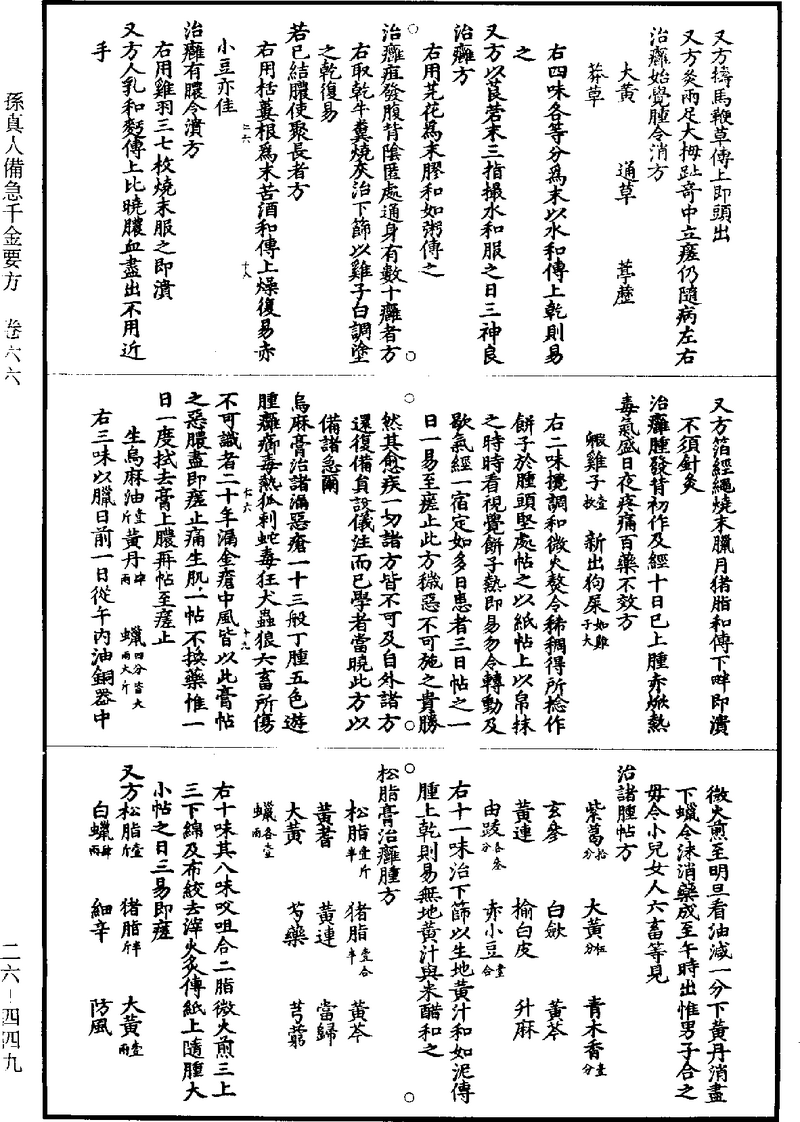 又方擣馬鞭草傅上即頭出
又方灸兩足大拇趾奇中立瘥仍隨病左右
治癰始覺腫令消方
大黃 通草 葶藶
莽草
右四味各等分為末以水和傅上乾則易
之
又方以莨菪末三指撮水和服之日三神良
治癰方
右用芫花為末膠和如粥傅之
治癰疽發腹背陰匿處通身有數十癰者方
右取乾牛糞燒灰治下篩以雞子白調塗
之乾復易
若已結膿使聚長者方
右用栝蔞根為末苦酒和傅上燥復易赤
小豆亦佳
治癰有膿令潰方
右用雞羽三七枚燒末服之即潰
又方人乳和麪傅上比曉膿血盡出不用近
手
又方箔經繩燒末臘月豬脂和傅下畔即潰
不須針灸
治癰腫發背初作及經十日已上腫赤焮熱
毒氣盛日夜疼痛百藥不效方
毈雞子壹枚 新出狗屎如雞子大
右二味攪調和微火熬令稀稠得所捻作
餅子於腫頭堅處帖之以紙帖上以帛抹
之時時看視覺餅子熱即易勿令轉動及
歇氣經一宿定如多日患者三日帖之一
日一易至瘥止此方穢惡不可施之貴勝
然其愈疾一切諸方皆不可及自外諸方
還復備員設儀注而已學者當曉此方以
備諸急爾
烏麻膏治諸漏惡瘡一十三般丁腫五色遊
腫癰癤毒熱狐刺蛇毒狂犬蟲狼六畜所傷
不可識者二十年漏金瘡中風皆以此膏帖
之惡膿盡即瘥止痛生肌一帖不換藥惟一
日一度拭去膏上膿再帖至瘥止
生烏麻油壹斤 黃丹肆兩 蠟四分皆大兩大斤
右三味以臘日前一日從午內油銅器中
微火煎至明旦看油減一分下黃丹消盡
下蠟令沫消藥成至午時出惟男子合之
毋令小兒女人六畜等見
治諸腫帖方
紫葛拾分 大黃伍分 青木香壹分
玄參 白蘞 黃芩
黃連 榆白皮 升麻
由跋各叁分 赤小豆壹合
右十一味治下篩以生地黃汁和如泥傅
腫上乾則易無地黃汁與米醋和之
松脂膏治癰腫方
松脂壹斤半 豬脂壹合半 黃芩
黃蓍 黃連 當歸
大黃 芍藥 芎藭
蠟各壹兩
右十味其八味㕮咀合二脂微火煎三上
三下綿及布絞去滓火炙傅紙上隨腫大
小帖之日三易即瘥
又方松脂壹斤 豬脂半斤 大黃壹兩
白蠟肆兩 細辛 防風
孫真人備急千金要方 卷六六
二六–四四九